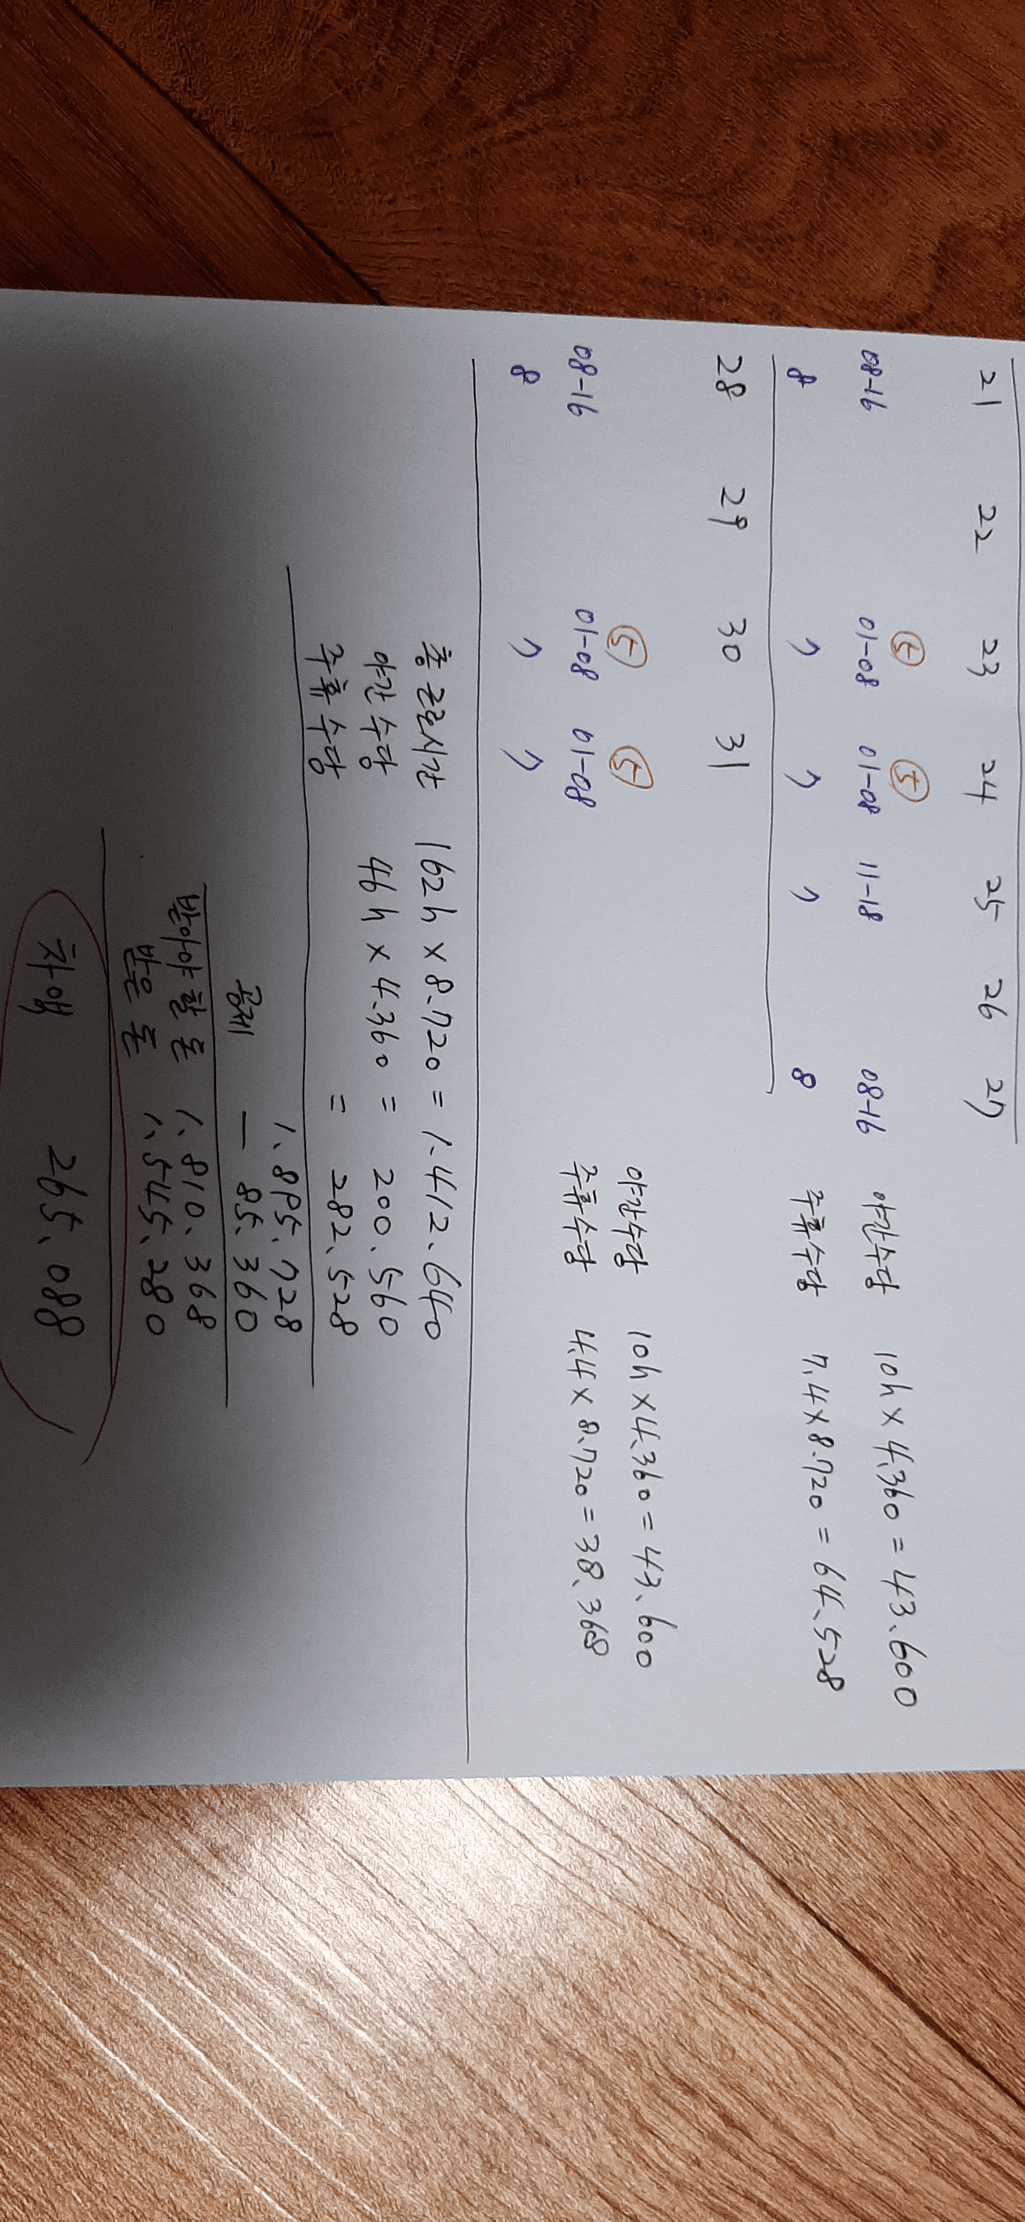 21 22 23 24 25 26 27
⑤ ⑤
08-16 01-08 01-08 11-18 08-16 야간수당 10h×4.360=43.600
8 7 7 7 8 주휴수당 7.4×8.720=64.528
28 29 30 31
⑤ ⑤ 야간수당 10h×4.360=43.600
08-16 01-08 01-08 주휴수당 4.4×8.720=38.368
8 7 7
총 근로시간 162h×8.720=1.412.640
야간수당 46h×4.360= 200.560
주휴수당 = 282.528
1.895.728
공제 - 85.360
받아야할 돈 1.810.368
받은 돈 1.545.280
차액 265.088